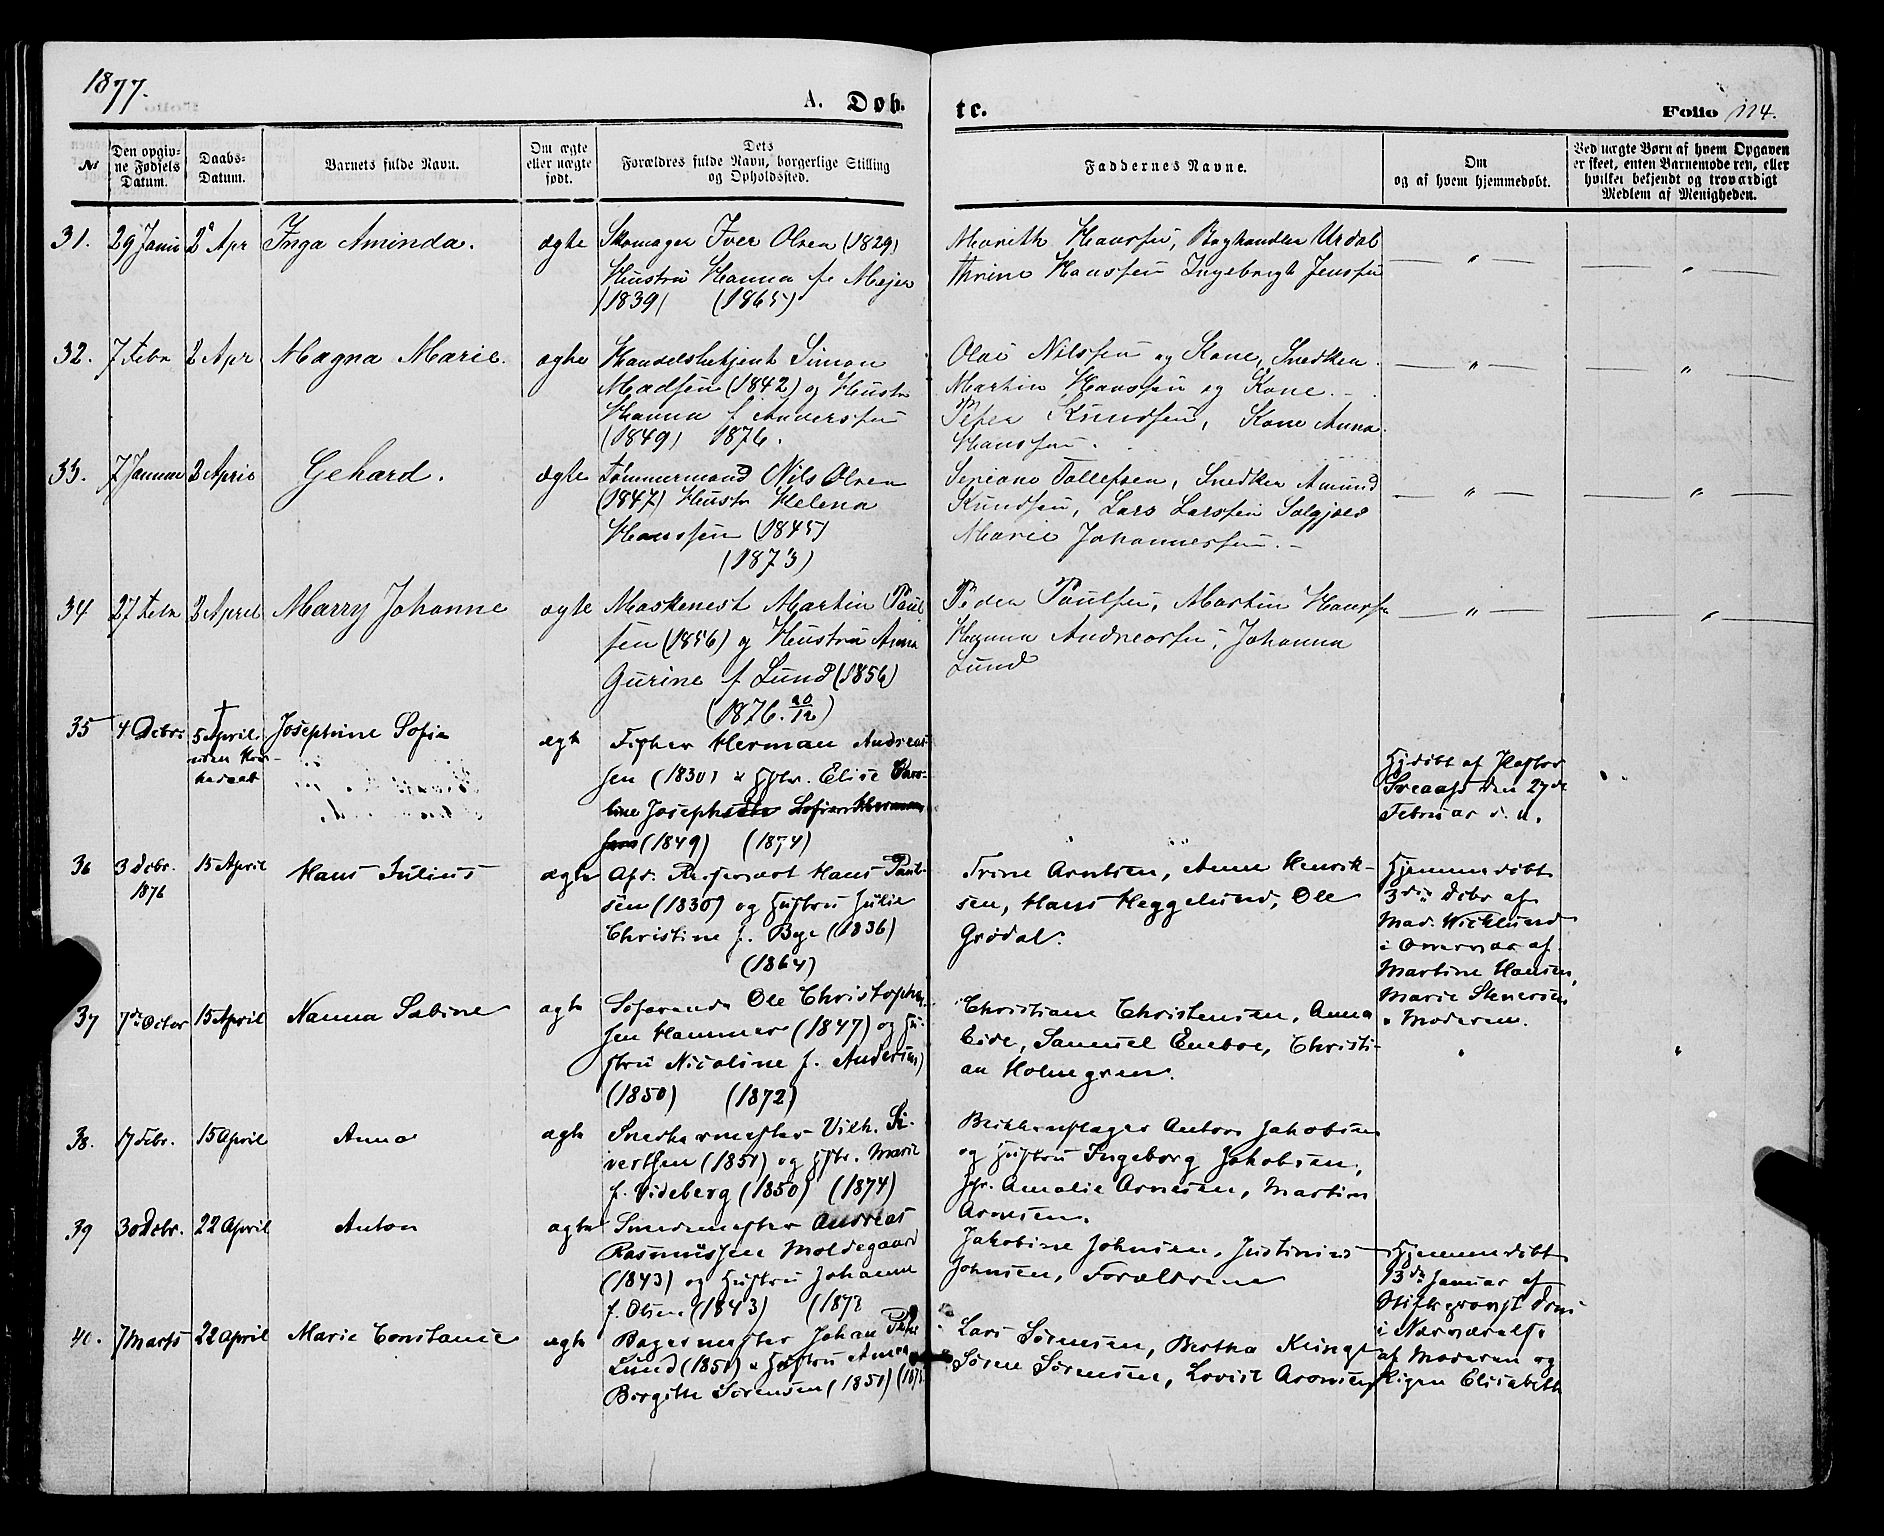 1877.
A. Døb.
te.
Folio 114.
No
Den opgiv-
ne Fødsels
Datum.
Daabs-
Datum.
Barnets fulde Navn.
Om ægte
eller uægte
født.
Dets
Forældres fulde Navn, borgerlige Stilling
og Opholdssted.
Faddernes Navne.
Om
og af hvem hjemmedøbt.
Ved uægte Børn af hvem Opgaven
er skeet, enten Barnemoderen, eller
hvilket bekjendt og troværdigt
Medlem af Menigheden.
31. 29 Janu 2 Apr Inga Aminda. ægte
Skomager Iver Olsen (1829)
Hustru Hanna f. Mejer
(1839) (1865)
Marith Hanssen, Boghandler Urdal
Thrine Hanssen Ingebrigt Jenssen
32. 7 Febr 2 Apr Magna Marie. ægte
Handelsbetjent Simon
Madsen (1842) og Hustr
Hanna f Anderssen
(1849) 1876.
Olai Nilssen og Kone, Snedker
Martin Hanssen og Kone.
Peter Knudsen, Kone Anna
Hanssen.
33. 7 Januar 2 April Gehard. ægte
Tømmermand Nils Olsen
(1847) Hustr Helena
Hanssen (1845)
(1873)
Tollefsen, Snedker Amund
Knudsen, Lars Larssen
Marie Johannessen.
34 27 Febr 2 April Marry Johanne ægte
Maskenest Martin Paul
sen (1856) og Hustru Anna
Gurine f Lund (1856)
(1876. 20/12)
Peder Paulsen, Martin Hanssen
Andreassen, Johanna
Lund
35 4 Debr. 5 April
Josephine Sofie ægte
Fisker Herman Andreas-
sen (1830) & Hstr. Elise
line Joseph
(1849) (1874)
Hjdøbt af Pastor
den 27de
Februar d. a.
36 3 Debr.
1876
15 April Hans Julius ægte
Afs. Hans Paul-
sen (1830) og Hustru Julie
Christine f. Bye (1836)
(1864)
Trine Arntsen, Anne Henrik-
sen, Hans Heggelund, Ole
Grødal.
Hjemmedøbt
3die Debr af
Mad. Wicklund
i Overvær af
Martine Hansen,
Marie Stenersen
& Moderen.
37 7de Octbr 15 April Nanna Sabine ægte
Søfarende Ole Christopher-
sen Hammer (1847) og Hu-
stru Nicoline f. Andersen
(1850) (1872)
Christiane Christensen, Anna
Eide, Samuel Eneboe, Christi-
an Holmgren.
38. 17 Febr. 15 April Anna ægte
Snedkermester Vilh. Si-
vertsen (1851) og Hstr. Marie
f. Videberg (1850) (1874)
Anton Jakobsen
og Hustru Ingeborg Jakobsen,
Jfr. Amalie Arnesen, Martin
Arnesen.
39 30 Debr. 22 April Anton ægte
Smedemester Andreas
Rasmussen Moldegaard
(1843) og Hustru Johanne
f. Olsen (1843) (1872
Jakobine Johnsen, Justinius
Johnsen, Forældrene
Hjemmedøbt
13de Januar af
Stiftsprovst
i Nærværelse
af Moderen og
Pigen Elisabeth
40. 7 Marts 22 April Marie Constanse ægte
Bagermester Johan Peter
Lund (1851) & Hustru Anna
Birgitte Sørensen (1851) (187
Lars Sørensen, Bertha Klingt
Sørine Sørensen, Lovise Aronsen